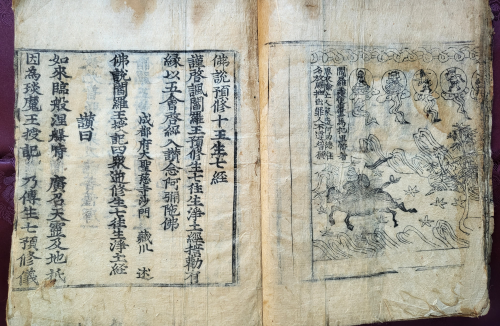 名放牒抽出罪人不違誓願
佛說預修十王生七經
謹啓諷閻羅王預修生七往生淨土經誓勸有
緣以五會啓經入讃念阿彌陁佛
成都府大聖慈寺沙門 藏川 述
佛說閻羅王授記四衆逆修生七往生淨土經
讃曰
如來臨般涅槃時 廣召天靈及地祇
因為琰魔王授記 乃傳生七預修儀